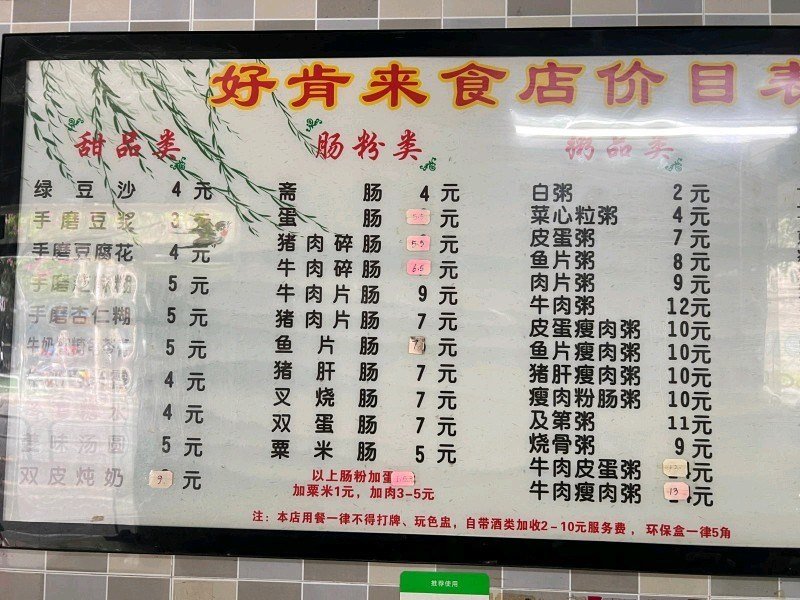 好肯来食店价目表
甜品类
绿豆沙 4元
手磨豆浆 3元
手磨豆腐花 4元
手磨芝麻糊 5元
手磨杏仁糊 5元
5元
4元
4元
美味汤圆 5元
双皮炖奶 9元
肠粉类
斋肠 4元
蛋肠 5.5元
猪肉碎肠 5.5元
牛肉碎肠 6.5元
牛肉片肠 9元
猪肉片肠 7元
鱼片肠 元
猪肝肠 7元
叉烧肠 7元
双蛋肠 7元
粟米肠 5元
以上肠粉加蛋
加粟米1元，加肉3-5元
粥品类
白粥 2元
菜心粒粥 4元
皮蛋粥 7元
鱼片粥 8元
肉片粥 9元
牛肉粥 12元
皮蛋瘦肉粥 10元
鱼片瘦肉粥 10元
猪肝瘦肉粥 10元
瘦肉粉肠粥 10元
及第粥 11元
烧骨粥 9元
牛肉皮蛋粥 元
牛肉瘦肉粥 13元
注：本店用餐一律不得打牌、玩色盅，自带酒类加收2-10元服务费，环保盒一律5角
推荐使用